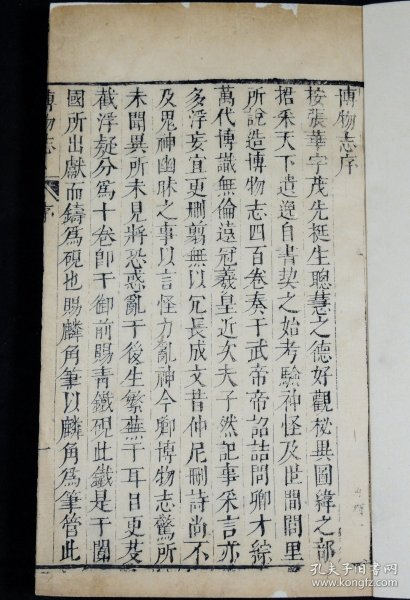 博物志序
按張華字茂先挺生聰慧之德好觀秘異圖緯之部
招采天下遺逸自書契之始考驗神怪及世間閭里
所說造博物志四百卷奏于武帝帝詔詰問卿才綜
萬代博識無倫遠冠羲皇近次夫子然記事采言亦
多浮妄宜更刪翦無以冗長成文昔仲尼刪詩尚不
及鬼神幽昧之事以言怪力亂神今卿博物志驚所
未聞異所未見將恐惑亂于後生繁蕪于耳目更芟
截浮疑分為十卷即于御前賜青鐵硯此鐵是于闐
國所出獻而鑄為硯也賜麟角筆以麟角為筆管此
博物志 序 一
孔夫子旧书网
www.kongfz.com